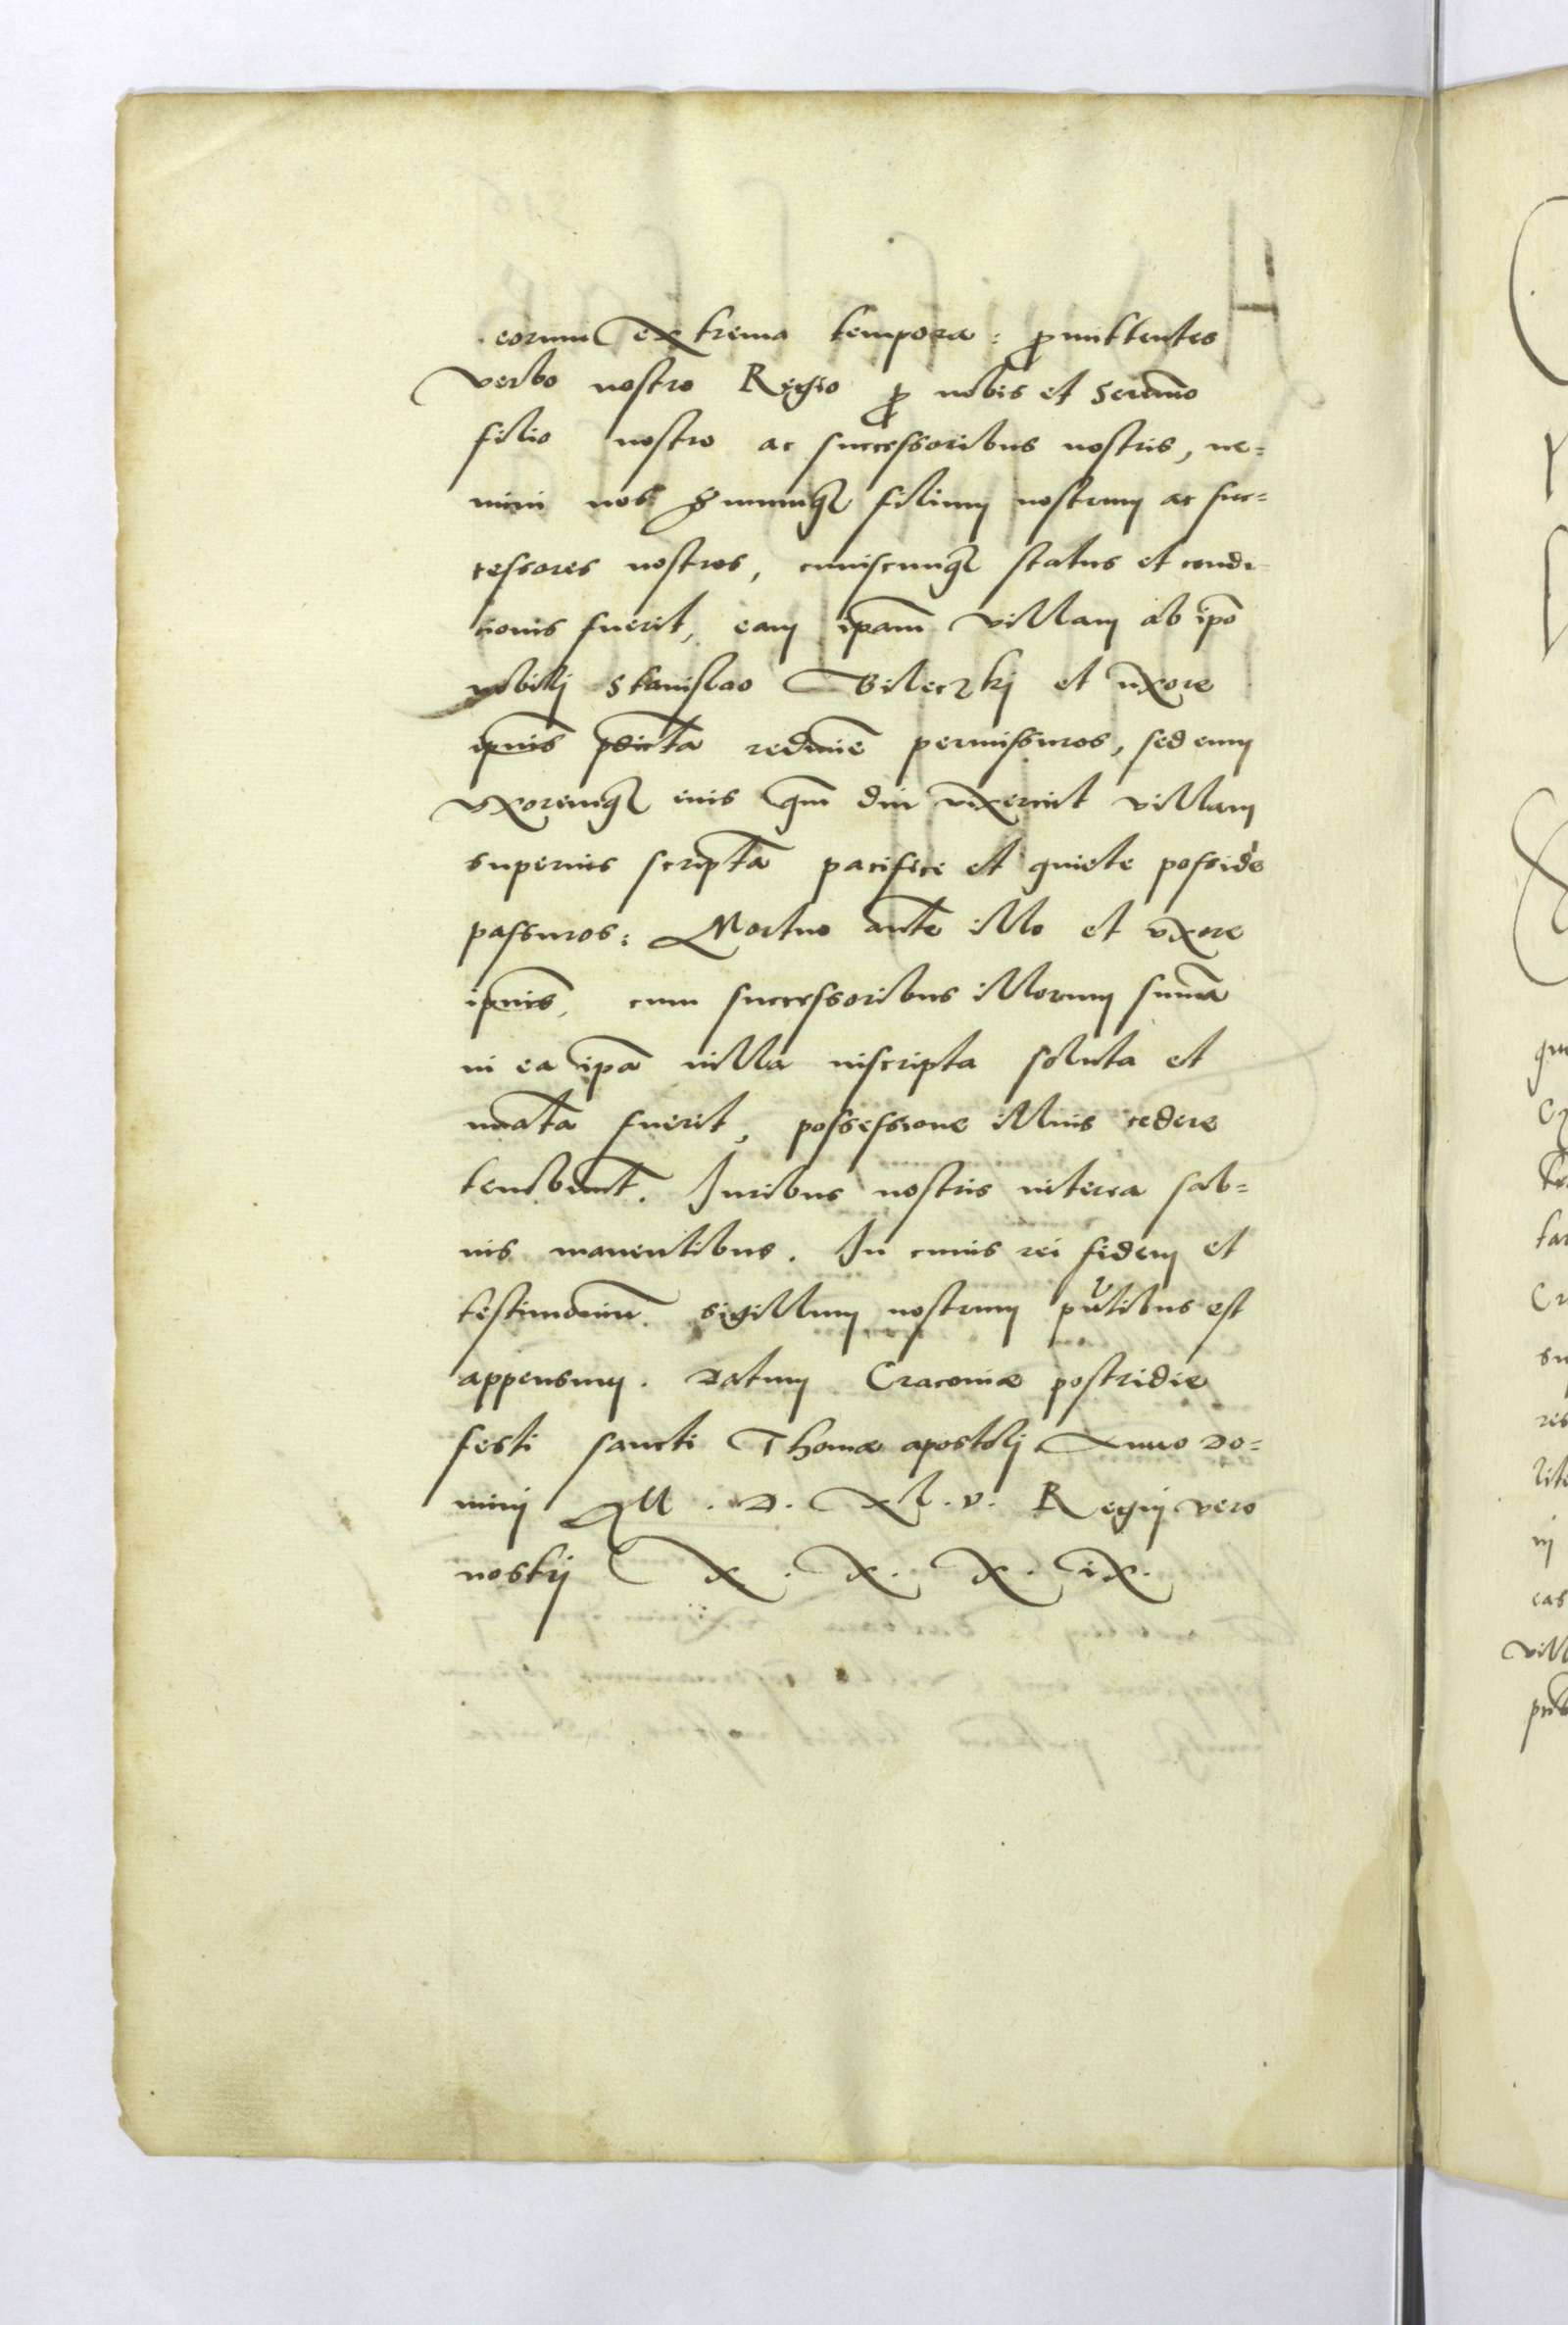 eorum extrema tempora: ꝓmittentes
verbo nostro Regio ꝓ nobis et Serenmo
filio nostro ac successoribus nostris, ne=
mini nos Smumqꝫ filium nostrum ac suc=
cessores nostros, cuiuscunqꝫ status et condi
tionis fuerit, eam ip̄am villam ab ip̄o
nobilj Stanislao Bileczkj et uxore
ip̄uis p̄dicta redimē permissuros, sed eum
vxoremqꝫ eius qm̄ diu vixerint villam
superius scriptā pacifice et quiete possidē
passuros: Mortuo aūte illo et vxore
ip̄uis, cum successoribus illorum sum̄a
in ea ip̄a villa inscripta soluta et
nūata fuerit, possessione illius cedere
tenebunt̄. Iuribus nostris interea sal=
uis manentibus. In cuius rei fidem et
testimoniū. sigillum nostrum pn̄tibus est
appensum. Datum Cracouiæ postridie
festi sancti Thomæ apostolj Anno Do=
minj M. D. XL. v. Regnj vero
nostrj X. X. X. iX.